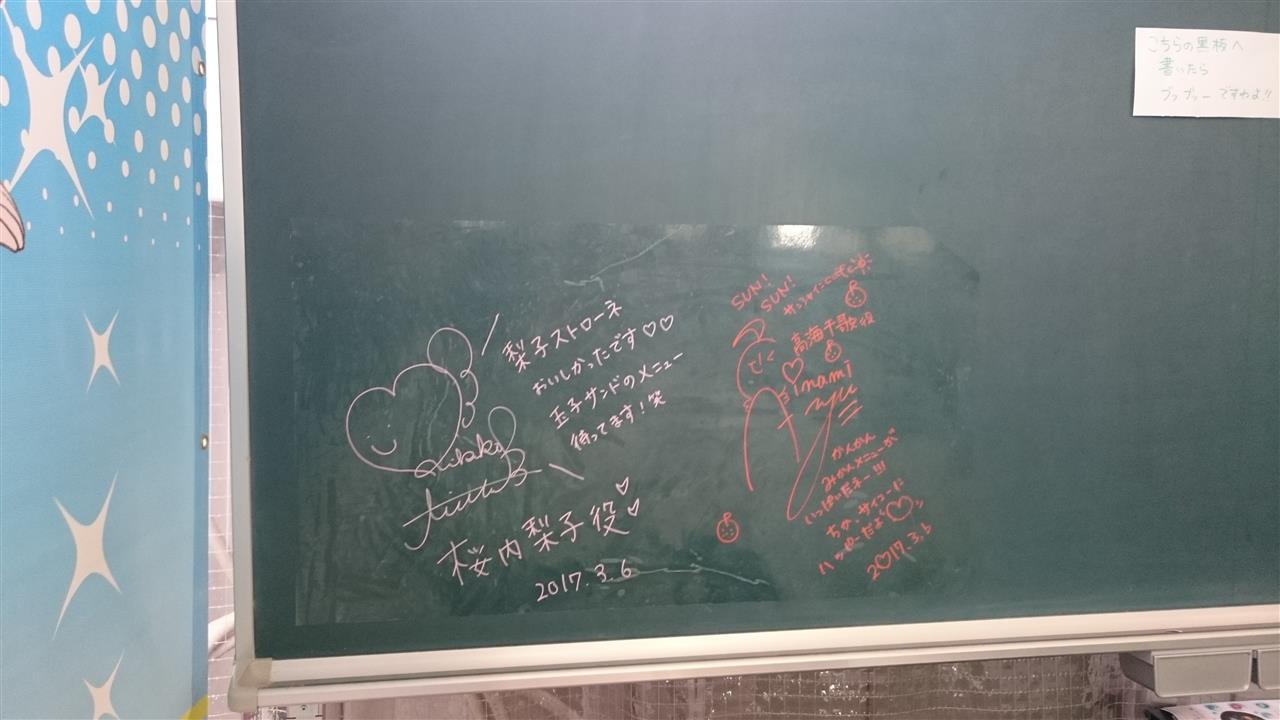 こちらの黒板へ
書いたら
ブッブッーですわよ!!
梨子ストローネ
おいしかったです♡♡
玉子サンドのメニュー
待ってます!笑
桜内梨子役♡♡
2017.3.6
SUN!
SUN!
高海千歌役
inami
かんかん
みかんメニューが
いっぱいだネー!!!
ちか、サイコーに
ハッピーだよ♡ッ
2017.3.6